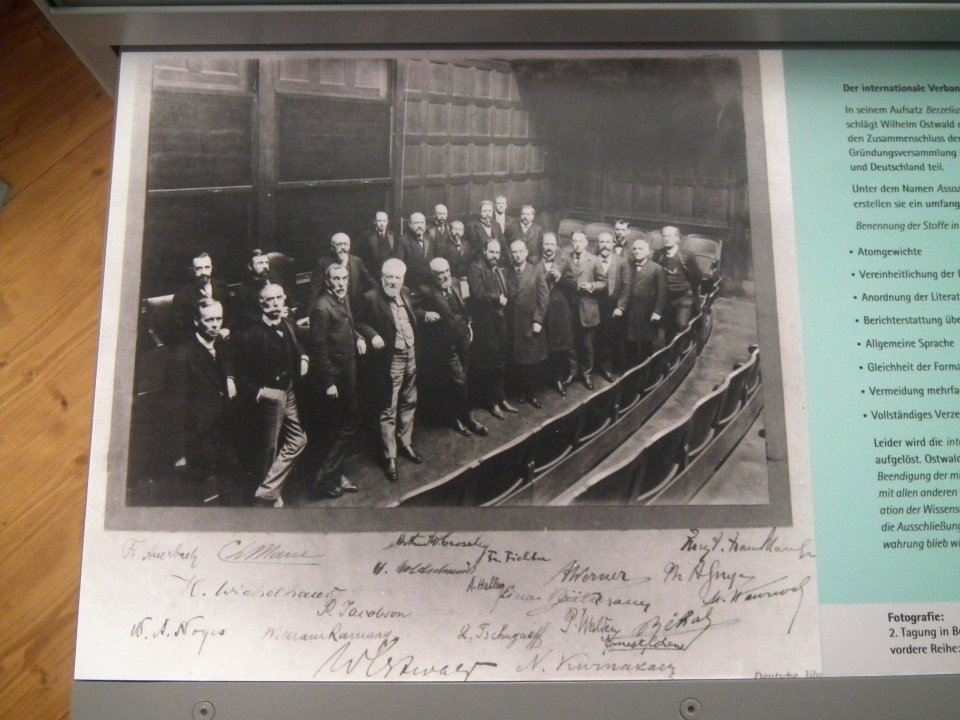 Der internationale Verban
In seinem Aufsatz Berzeliu
schlägt Wilhelm Ostwald
den Zusammenschluss der
Gründungsversammlung
und Deutschland teil.
Unter dem Namen Assoz
erstellen sie ein umfang
Benennung der Stoffe in
• Atomgewichte
• Vereinheitlichung der
• Anordnung der Literat
• Berichterstattung übe
• Allgemeine Sprache
• Gleichheit der Forma
• Vermeidung mehrfa
• Vollständiges Verze
Leider wird die int
aufgelöst. Ostwald
Beendigung der mi
mit allen anderen
ation der Wissens
die Ausschließung
wahrung blieb wi
Fotografie:
2. Tagung in Be
vordere Reihe:
Fr. Auerbach C. Marie Arthur W. Crossley Fr. Fichter
A. Haller A. Werner Ph. A. Guye
H. Wichelhaus
P. Jacobson
W. A. Noyes William Ramsay L. Tschugaeff P. Walden Béhal
Ernst Cohen
W Ostwald N. Kurnakow
Deutsche